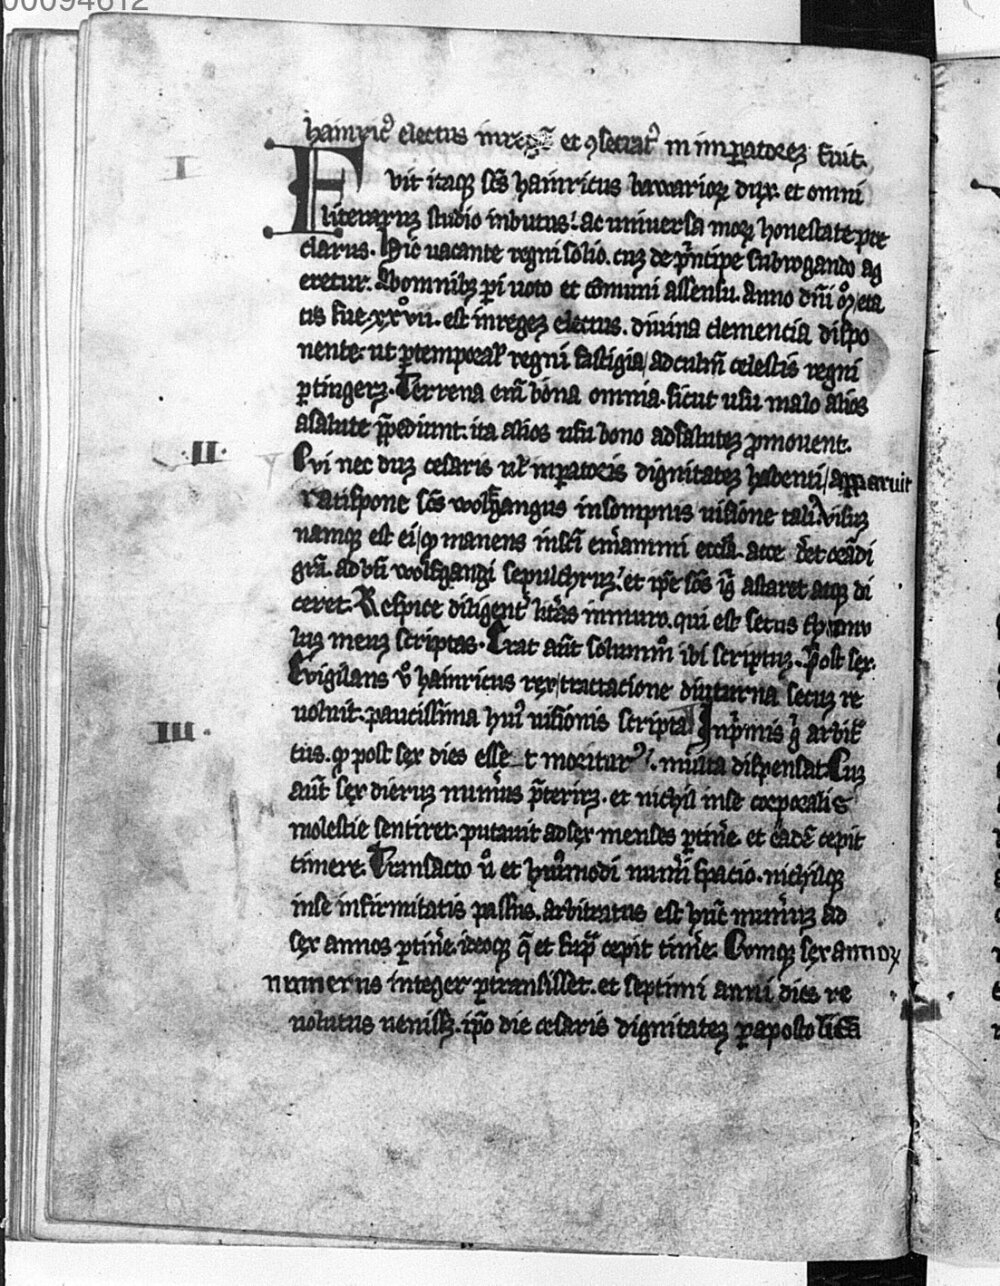 00094612
hainric' electus in regē et ɔsecrat' in imꝑatorez fuit.
I
Fvit itaqꝫ scs hainricus bawarioꝝ dux. et omni
literaruz studio inbutus: ac universa moꝝ honestate pre
clarus. Hic uacante regni solio. cuz de pͥncipe subrogando ag
eretur. Ab omnibꝫ pi uoto et cōmuni assensu. Anno dn̄i eta
tis sue xxvii. est in regez electus. diuina clemencia dispo
nente: ut ꝑ temporal' regni fastigia / ad culm̄ celestis regni
ꝑtingerꝫ. Terrena em̄ bona omnia. sicut usu malo alios
a salute p̄pediunt: ita alios usu bono ad salutez ꝓmouent.
II.
Cvi nec duz cesaris ul' imꝑatoris dignitatez habenti / apparuit
ratispone scs wolfgangus in sompnis uisione tali. Visuz
namqꝫ est ei / ꝙ manens in sc̄i em̄ammi eccl'a. ante
grā. ad bt̄i wolfgangi sepulchruz: et ip̄e scs astaret atqꝫ di
ceret. Respice diligent' litt̄as in muro. qui est secus
lus meuz scriptas. Erat aūt solumm̊ ibi scriptuz. Post sex.
Evigilans v̊ hainricus rex / tractacione diuturna secuz re
uoluit. paucissima hui' uisionis scripta. In pͥmis gͥ arbit͛
III.
tus. ꝙ post sex dies esset moritur'. multa dispensat. Cuz
aūt sex dieruz num̄us p̄teritꝫ. et nichil in se corporalis
molestie sentiret. putauit ad sex menses ꝑtin̄e. et eadē cepit
timere. Transacto ů et hui'modi num̄i spacio. nichilqꝫ
in se infirmitatis passus. arbitratus est hūc num̄uz ad
sex annos ꝑtin̄e. ideoqꝫ et cepit tim̄e. Cumqꝫ sex annoꝝ
numerus integer ꝑtransisset. et septimi anni dies re
uolutus uenissꝫ. ip̄o die cesaris dignitatez ꝑ apostolicā